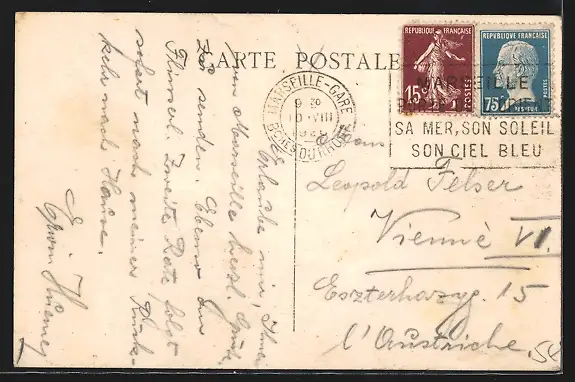 CARTE POSTALE
RÉPUBLIQUE FRANÇAISE
15c
POSTES
RÉPUBLIQUE FRANÇAISE
75c
POSTES
MARSEILLE-GARE
9 30
10 VIII
BCHES DU RHONE
MARSEILLE
SA MER, SON SOLEIL
SON CIEL BLEU
Leopold Felser
Vienne VI.
Eszterhazyg. 15
l'Austriche.
Erlaube mir, Ihnen
von Marseille herzl. Grüße
zu senden. Ebenso an
Zweite Rate folgt
sofort nach meiner Rück-
kehr nach Hause.
Erwin